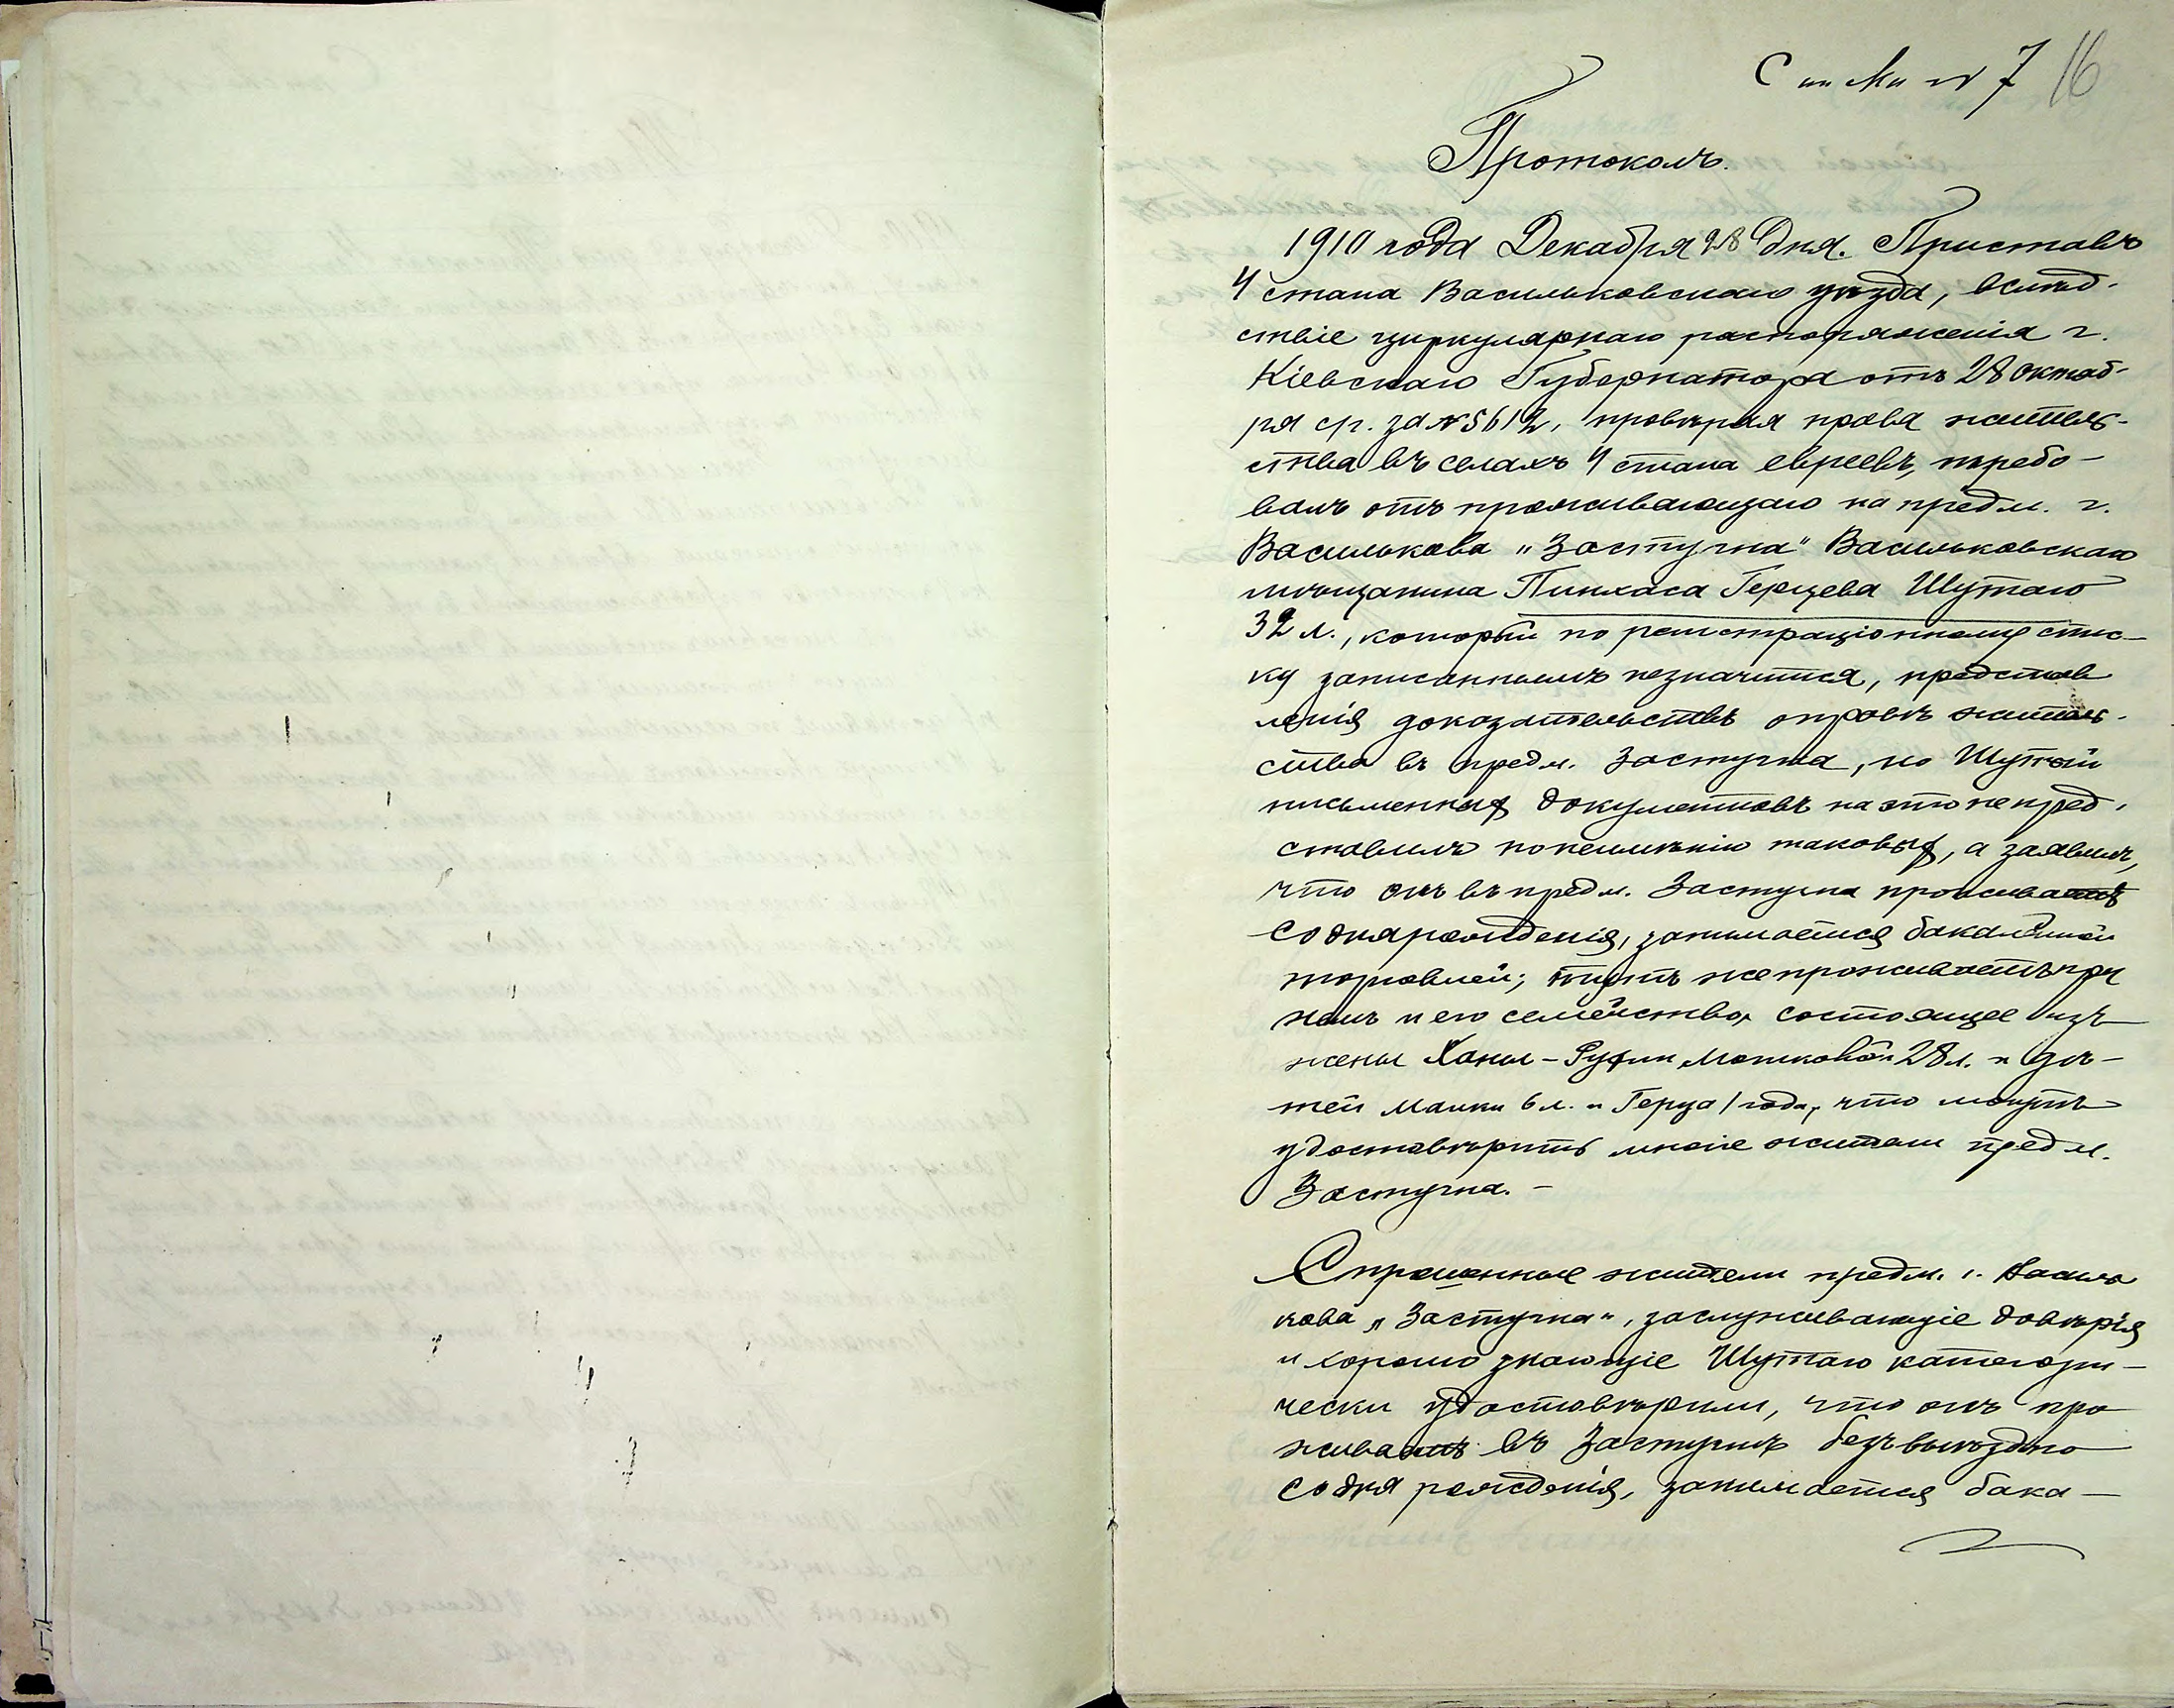 Списки № 7 16
Протоколъ.
1910 года Декабря 28 дня. Приставъ
4 стана Васильковскаго уѣзда, вслѣд-
ствіе циркулярнаго распоряженія г.
Кіевскаго Губернатора отъ 28 октяб-
ря ср. за № 5612, провѣряя права житель-
ства въ селахъ 4 стана евреевъ, требо-
валъ отъ проживающаго на предм. г.
Василькова „Застугна" Васильковскаго
мѣщанина Пинхаса Герцева Шутаго
32 л., который по регистраціонному спис-
ку записаннымъ незначится, представ
ленія доказательствъ о правѣ житель-
ства въ предм. Застугна, но Шутый
письменных документовъ на это не пред-
ставилъ по неимѣнію таковых, а заявилъ,
что онъ въ предм. Застугна проживаетъ
со дня рожденія, занимается бакалейной
торговлей; тутъ же проживаетъ при
немъ и его семейство, состоящее изъ
жены Ханы-Руфли Мошковой 28 л. и дѣ-
тей Маики 6 л. и Герца 1 года, что могутъ
удостовѣрить многіе жители предм.
Застугна. –
Спрошенные жители предм. г. Василь
кова „Застугна", заслуживающіе довѣрія
и хорошо знающіе Шутаго категори-
чески удостовѣрили, что онъ про
живаетъ въ Застугнѣ безъвыѣздно
со дня рожденія, занимается бака-